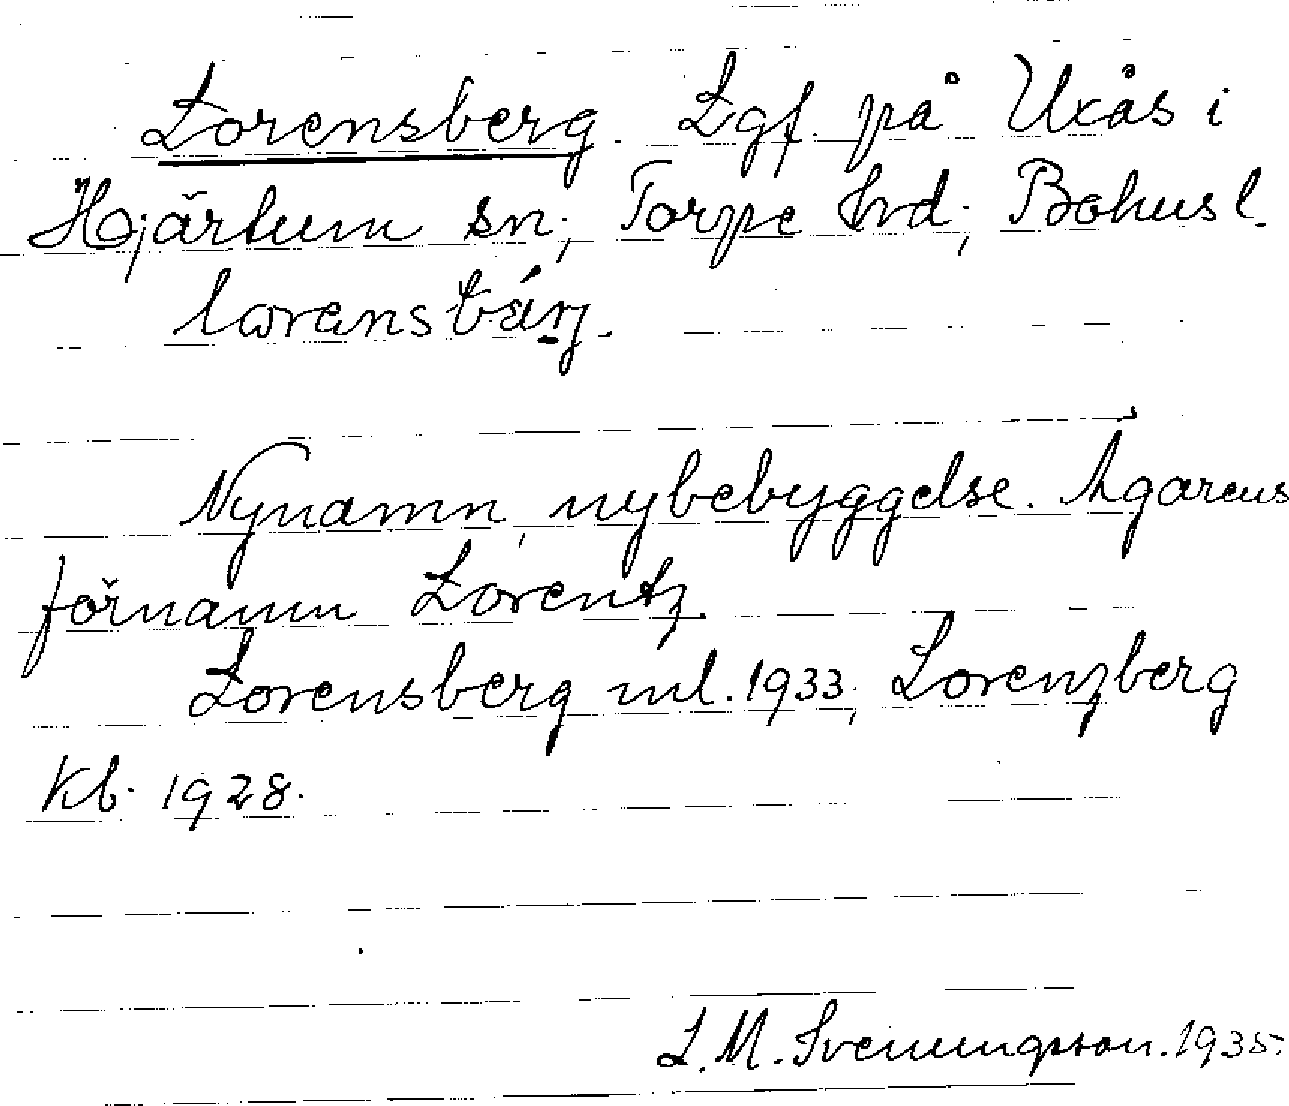 Lorensberg. Lgf. på Uxås i
Hjärtum sn; Torpe hrd; Bohusl.
Nynamn, nybebyggelse. Ägarens
förnamn Lorentz.
Lorensberg ml. 1933; Lorenzberg
Kb. 1928.
L. M. Svenungsson. 1935.